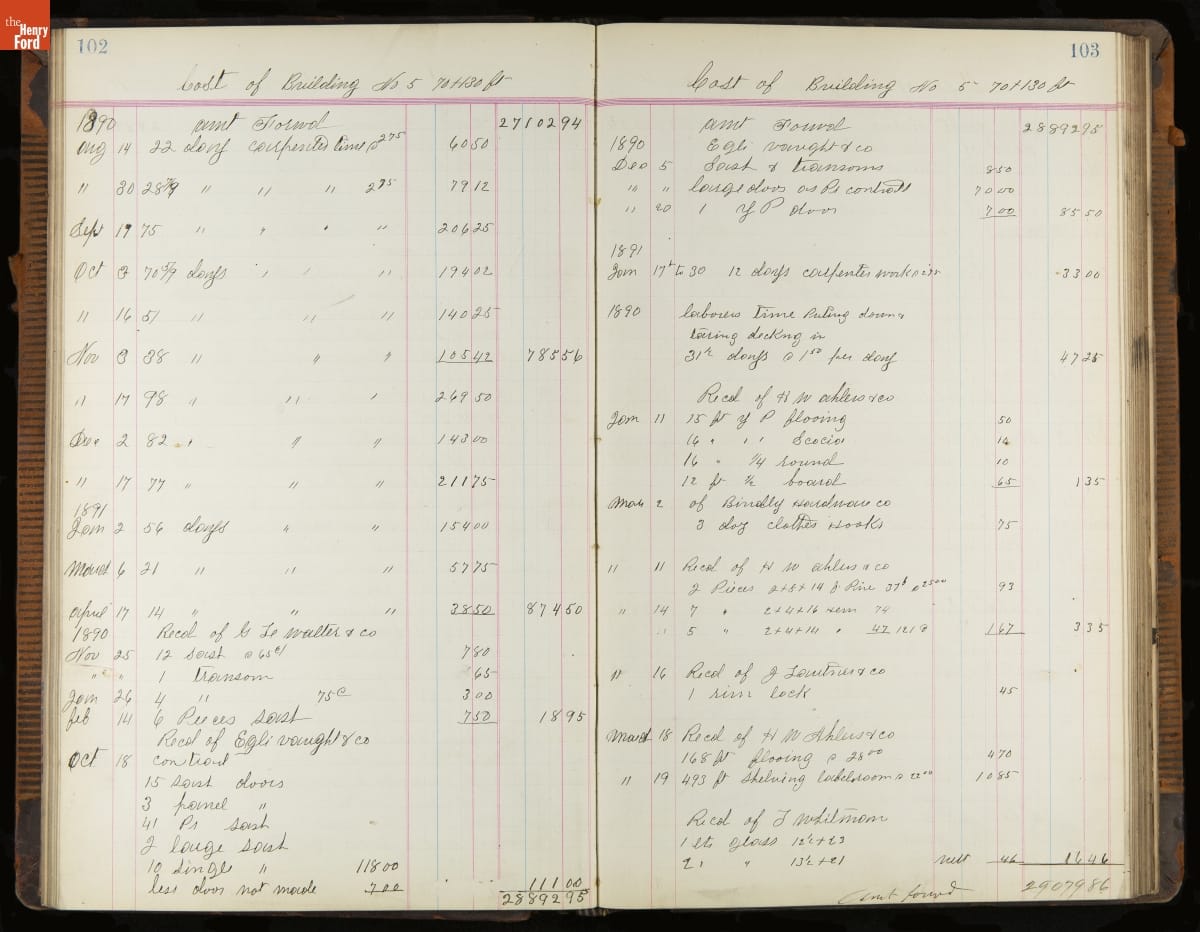 the
Henry
Ford
102
Cost of Building No 5 70+130 ft
1890 amt Forwd 2710294
Aug 14 22 days carpenter time @ 275 6050
" 30 28 7/9 " " " 275 7912
Sept 19 75 " " " " 20625
Oct 3 70 5/9 days " " " 19402
" 16 51 " " " 14025
Nov 3 38 " " " 10542 78556
" 17 98 " " " 26950
Dec 2 52 " " " 14300
" 17 77 " " " 21175
1891
Jan 2 56 days " " 15400
March 6 21 " " " 5775
April 17 14 " " " 3850 87450
1890 Recd of Walter & co
Nov 25 12 Sash @ 65c 780
" " 1 transom 65
Jan 26 4 " 75c 300
Feb 14 6 Pieces Sash 750 1895
Recd of Egli vaught & co
Oct 18 contract
15 Sash doors
3 panel "
41 Pr Sash
2 large Sash
10 Single " 11800
less door not made 700 11100
2889295
103
Cost of Building No 5 70+130 ft
amt Forwd 2889295
1890 Egli vaught & co
Dec 5 Sash & transoms 850
" " large doors as Pr contract 7000
" 20 1 Y P door 700 8550
1891
Jan 17th to 30 12 days carpenter work @ 275 3300
1890 laborers time Puting down &
taring deckng in
31 1/2 days @ 150 per day 4725
Recd of H W Ahlers & co
Jan 11 15 ft Y P flooing 50
16 " " " Scocia 10
16 " 1/4 round 10
12 ft 1/2 board 65 135
Mar 2 of Bindly Hardware co
3 doz clothes Hooks 75
" 11 Recd of H W Ahlers & co
2 Pieces 2+8+14 Y Pine 37ft @ 2500 93
" 14 7 " 2+4+16 Hem 74
" 5 " 2+4+14 " 47 121 @ 167 335
" 16 Recd of J Lautner & co
1 rim lock 45
March 18 Recd of H W Ahlers & co
168 ft flooing @ 2800 470
" 19 493 ft Shelving labelroom @ 2200 1085
Recd of T Whitman
1 glass 12 1/2+23
2 " " 13 1/2+21 nett 46 1646
Amt forwd 2907986